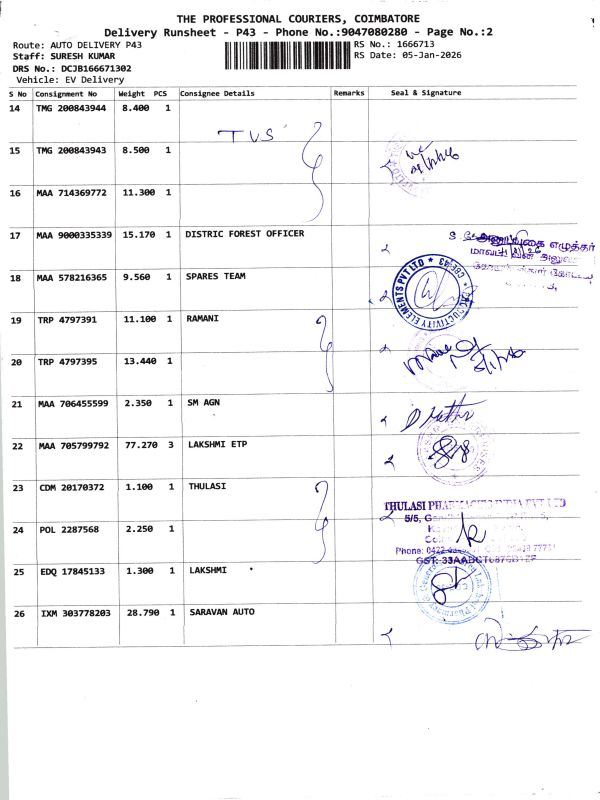 THE PROFESSIONAL COURIERS, COIMBATORE
Delivery Runsheet - P43 - Phone No.:9047080280 - Page No.:2
Route: AUTO DELIVERY P43
RS No.: 1666713
Staff: SURESH KUMAR
RS Date: 05-Jan-2026
DRS No.: DCJB166671302
Vehicle: EV Delivery
S No Consignment No Weight PCS Consignee Details Remarks Seal & Signature
14 TMG 200843944 8.400 1
TVS
15 TMG 200843943 8.500 1
16 MAA 714369772 11.300 1
17 MAA 9000335339 15.170 1 DISTRIC FOREST OFFICER
18 MAA 578216365 9.560 1 SPARES TEAM
19 TRP 4797391 11.100 1 RAMANI
20 TRP 4797395 13.440 1
21 MAA 706455599 2.350 1 SM AGN
22 MAA 705799792 77.270 3 LAKSHMI ETP
23 CDM 20170372 1.100 1 THULASI
THULASI PHARMACIES INDIA PVT LTD
24 POL 2287568 2.250 1
25 EDQ 17845133 1.300 1 LAKSHMI
26 IXM 303778203 28.790 1 SARAVAN AUTO